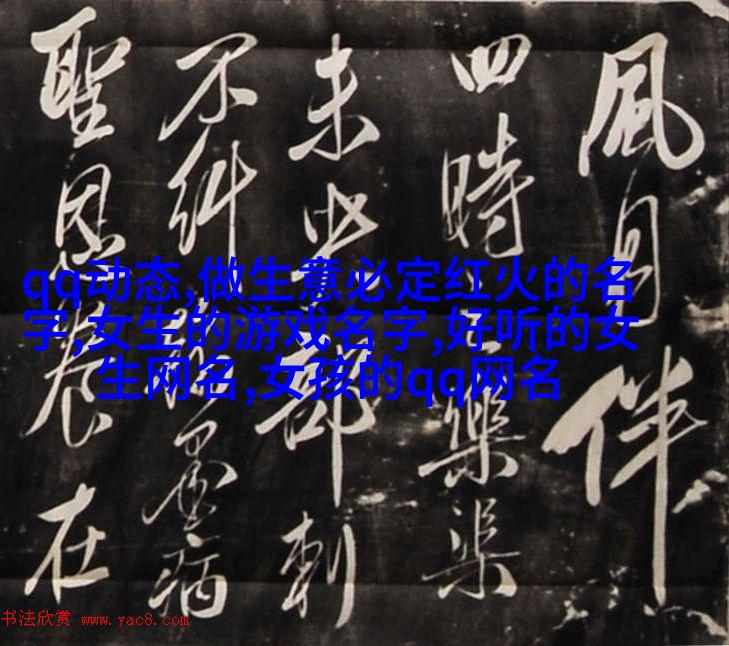 風月伴
四時樂柒
未部刺
不糾墨病
聖恩在
qq动态,做生意必定红火的名
字,女生的游戏名字,好听的女
生网名,女孩的qq网名
书法欣赏 www.yac8.com